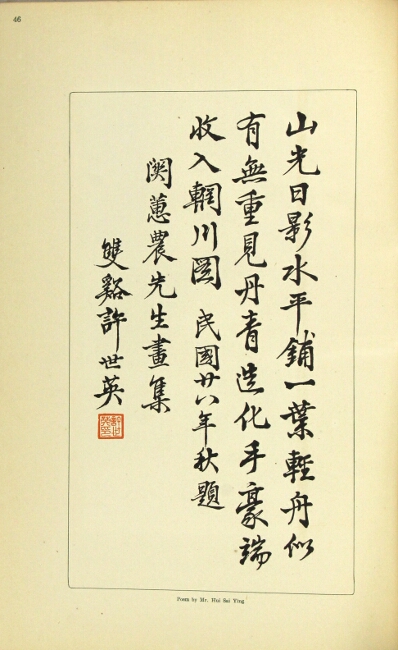 46
山光日影水平鋪一葉輕舟似
有無重見丹青造化手豪端
收入輞川图 民國廿八年秋題
闕蕙農先生畫集
雙谿許世英
Poem by Mr. Hui Sai Ying